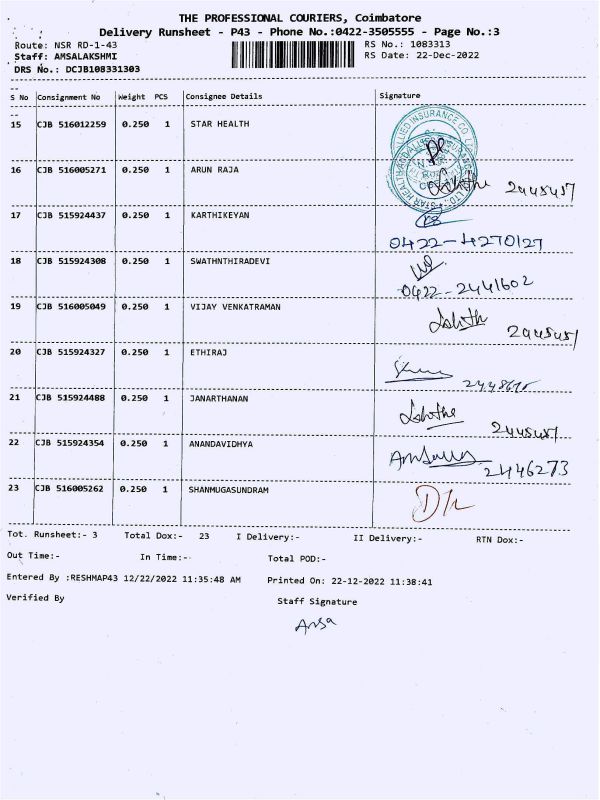 THE PROFESSIONAL COURIERS, Coimbatore
Delivery Runsheet - P43 - Phone No.:0422-3505555 - Page No.:3
Route: NSR RD-1-43 RS No.: 1083313
Staff: AMSALAKSHMI RS Date: 22-Dec-2022
DRS No.: DCJB108331303
S No Consignment No Weight PCS Consignee Details Signature
15 CJB 516012259 0.250 1 STAR HEALTH
16 CJB 516005271 0.250 1 ARUN RAJA
17 CJB 515924437 0.250 1 KARTHIKEYAN
0422-4270127
18 CJB 515924308 0.250 1 SWATHNTHIRADEVI
0422-2441602
19 CJB 516005049 0.250 1 VIJAY VENKATRAMAN
20 CJB 515924327 0.250 1 ETHIRAJ
21 CJB 515924488 0.250 1 JANARTHANAN
22 CJB 515924354 0.250 1 ANANDAVIDHYA
2446273
23 CJB 516005262 0.250 1 SHANMUGASUNDRAM
Tot. Runsheet:- 3 Total Dox:- 23 I Delivery:- II Delivery:- RTN Dox:-
Out Time:- In Time:- Total POD:-
Entered By :RESHMAP43 12/22/2022 11:35:48 AM Printed On: 22-12-2022 11:38:41
Verified By Staff Signature
Amsa